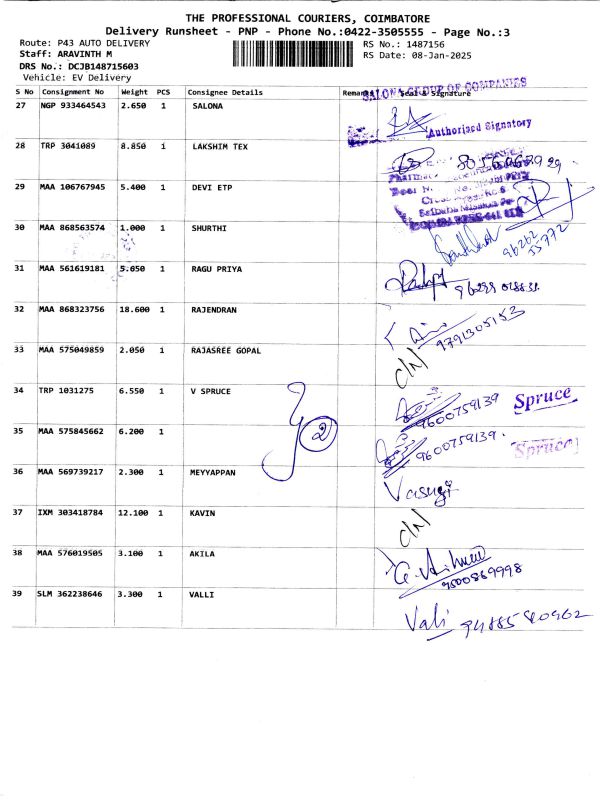 THE PROFESSIONAL COURIERS, COIMBATORE
Delivery Runsheet - PNP - Phone No.:0422-3505555 - Page No.:3
Route: P43 AUTO DELIVERY
Staff: ARAVINTH M
DRS No.: DCJB148715603
Vehicle: EV Delivery
RS No.: 1487156
RS Date: 08-Jan-2025
S No Consignment No Weight PCS Consignee Details Remarks Seal & Signature
SALONA GROUP OF COMPANIES
27 NGP 933464543 2.650 1 SALONA
Authorised Signatory
28 TRP 3041089 8.850 1 LAKSHIM TEX
29 MAA 106767945 5.400 1 DEVI ETP
30 MAA 868563574 1.000 1 SHURTHI
96262
55772
31 MAA 561619181 5.050 1 RAGU PRIYA
32 MAA 868323756 18.600 1 RAJENDRAN
9791305153
33 MAA 575049859 2.050 1 RAJASREE GOPAL
C/N/
34 TRP 1031275 6.550 1 V SPRUCE
9600759139 Spruce
2
35 MAA 575845662 6.200 1
9600759139. Spruce
36 MAA 569739217 2.300 1 MEYYAPPAN
Vasugi
37 IXM 303418784 12.100 1 KAVIN
C/N/
38 MAA 576019505 3.100 1 AKILA
9500869998
39 SLM 362238646 3.300 1 VALLI
Vali 94885 40962